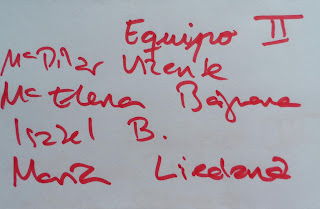 Equipo II
Mª Pilar Vicente
Mª Elena Bajnana
Isabel B.
María Liedana